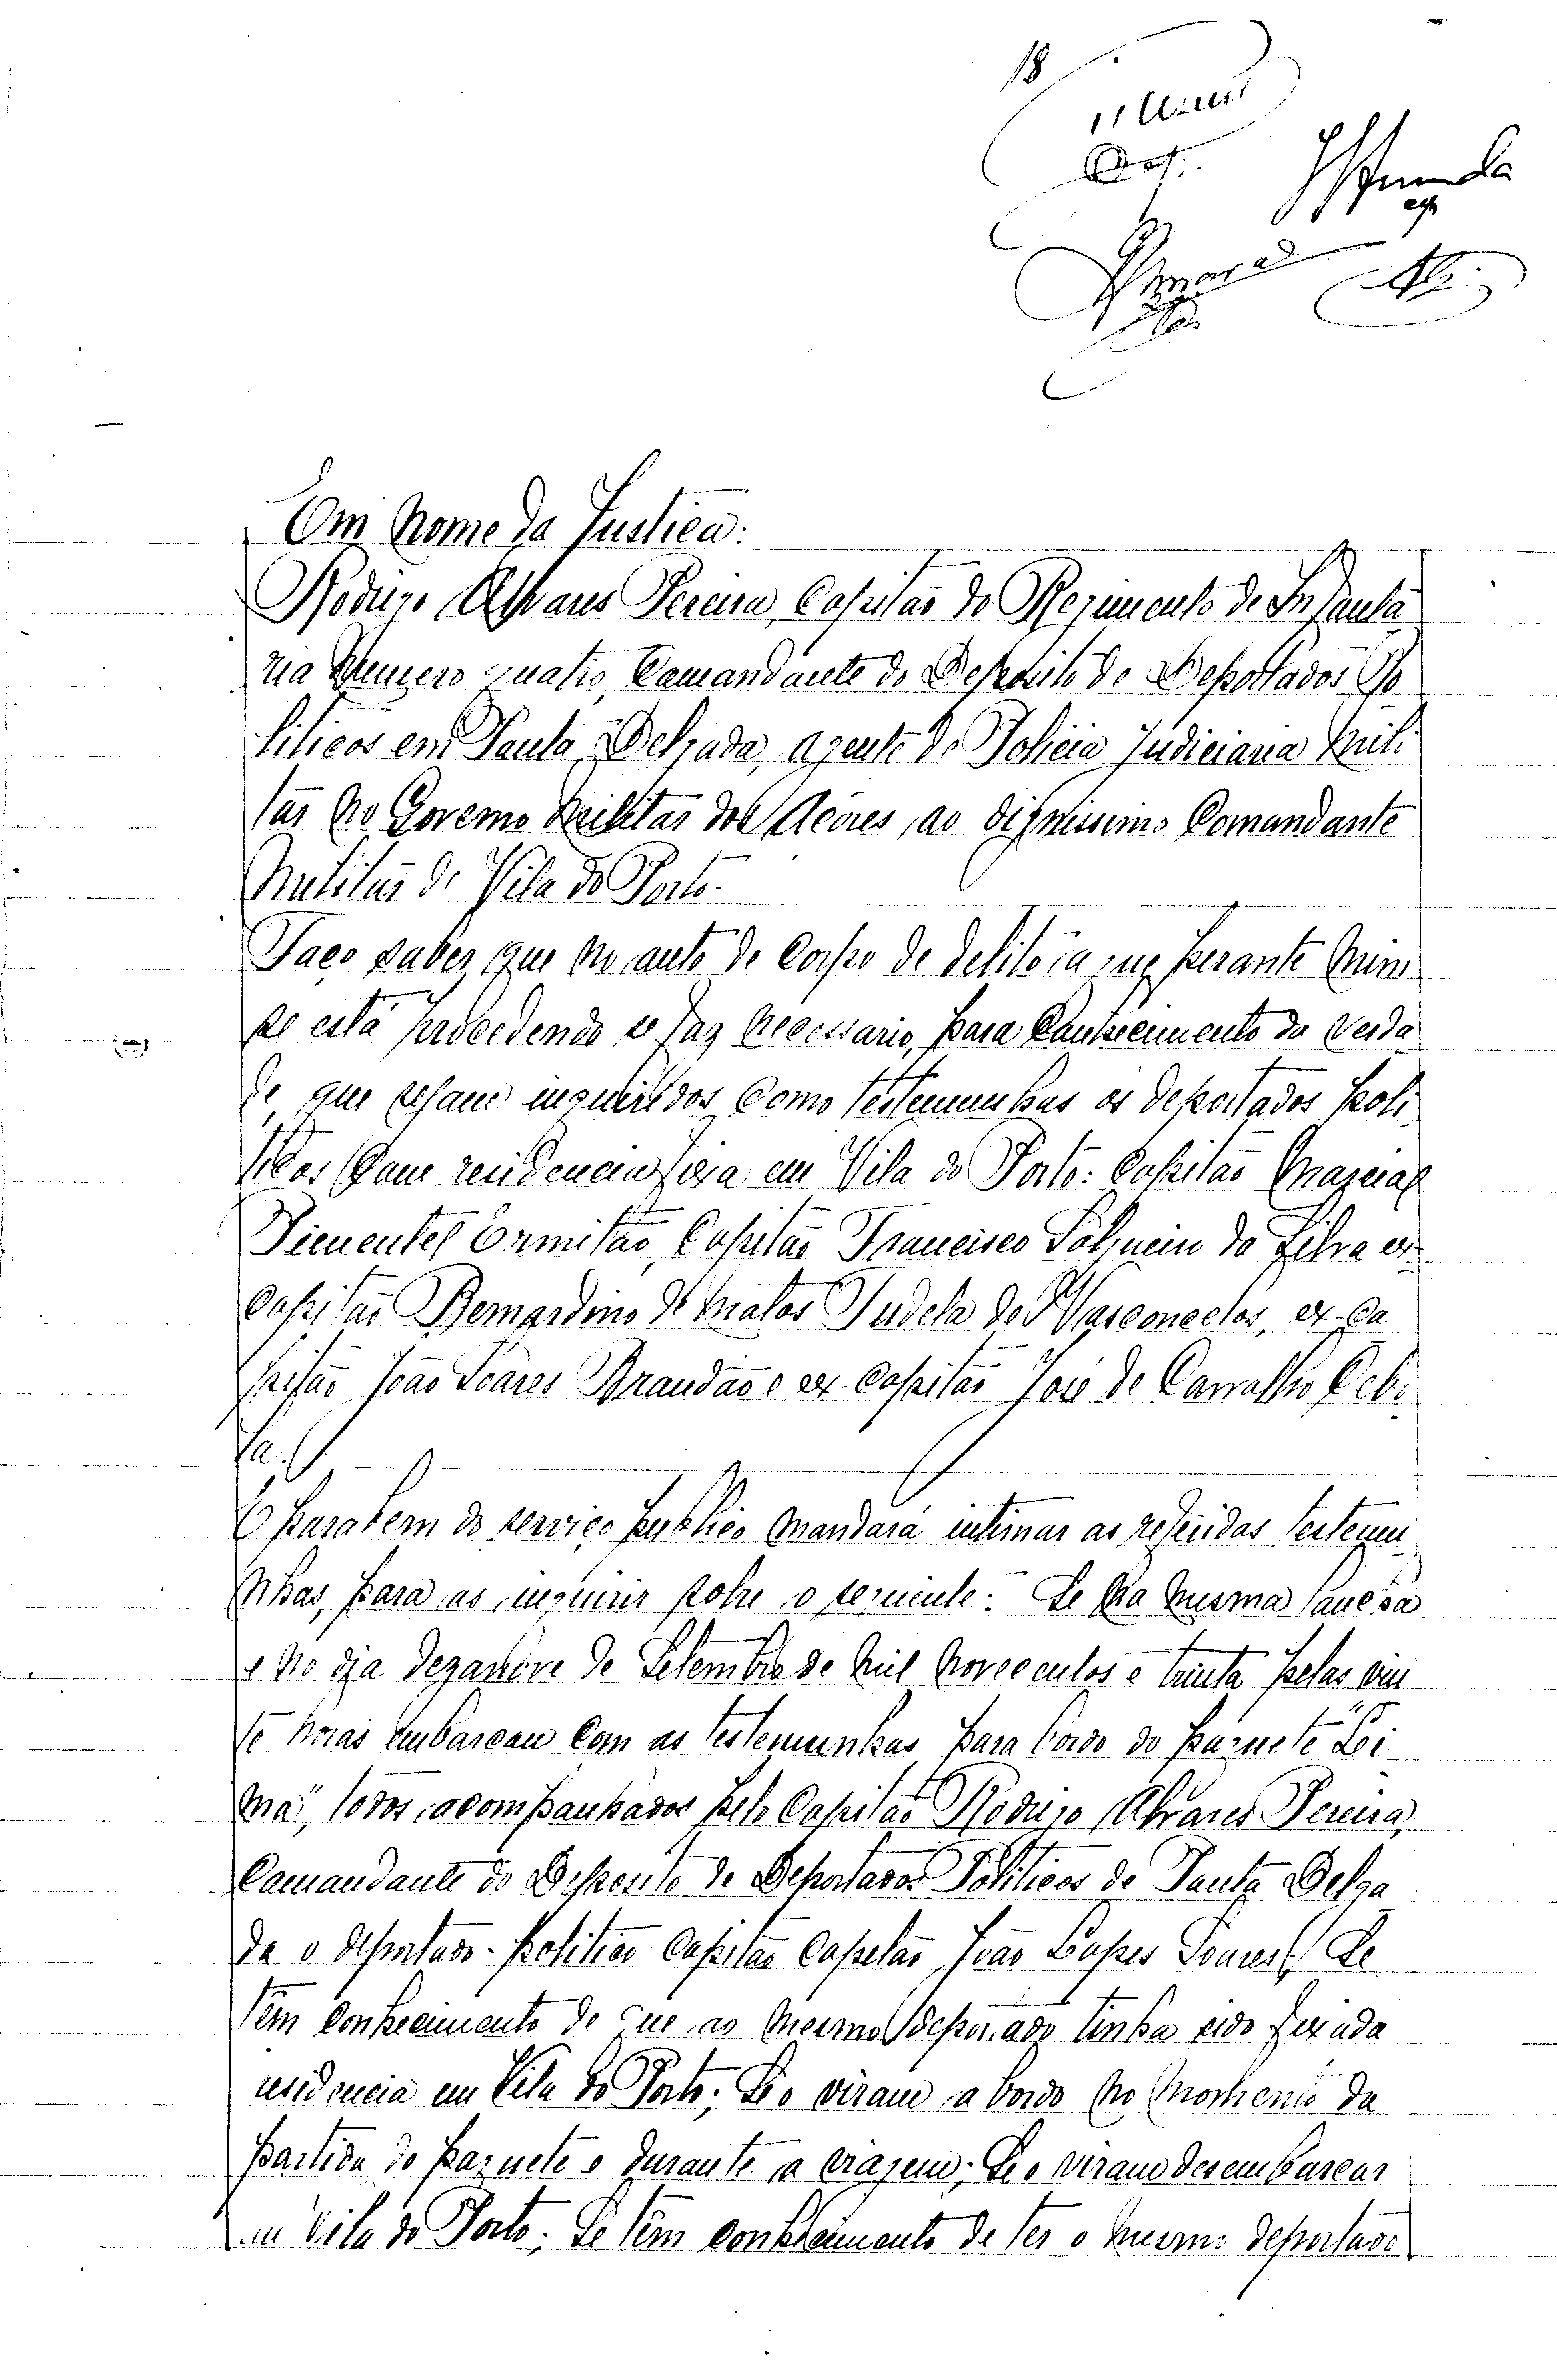 18
Em Nome da Justiça:
Rodrigo Alvares Pereira, Capitão do Regimento de Infanta
ria Numero quatro, Comandante do Deposito de Deportados Po
liticos em Ponta Delgada, agente da Policia Judiciaria Mili
tar no Governo Militar dos Açores, ao dignissimo Comandante
Militar de Vila do Porto.
Faço saber que no auto de corpo de delito a que perante mim
se está procedendo se faz necessario, para conhecimento da verda
de, que sejam inquiridos como testemunhas os deportados poli
ticos com residencia fixa em Vila do Porto: Capitão
Pimentel Ermitão, Capitão Francisco da Silva ex-
capitão Bernardino de Matos Tudela de Vasconcelos, ex-ca
pitão João Soares Brandão e ex-capitão José de Carvalho
E para bem do serviço publico mandará intimar as referidas testemu
nhas, para as inquirir sobre o seguinte: Se na mesma
e no dia dezanove de Setembro de mil novecentos e trinta pelas vin
te horas embarcou com as testemunhas para bordo do paquete "Li
ma", todos acompanhados pelo Capitão Rodrigo Alvares Pereira,
Comandante do Deposito de Deportados Politicos de Ponta Delga
da o deportado politico capitão capelão João Lopes Soares; Se
têm conhecimento de que ao mesmo deportado tinha sido fixada
residencia em Vila do Porto; Se o viram a bordo no momento da
partida do paquete e durante a viagem; Se o viram desembarcar
em Vila do Porto; Se têm conhecimento de ter o mesmo deportado